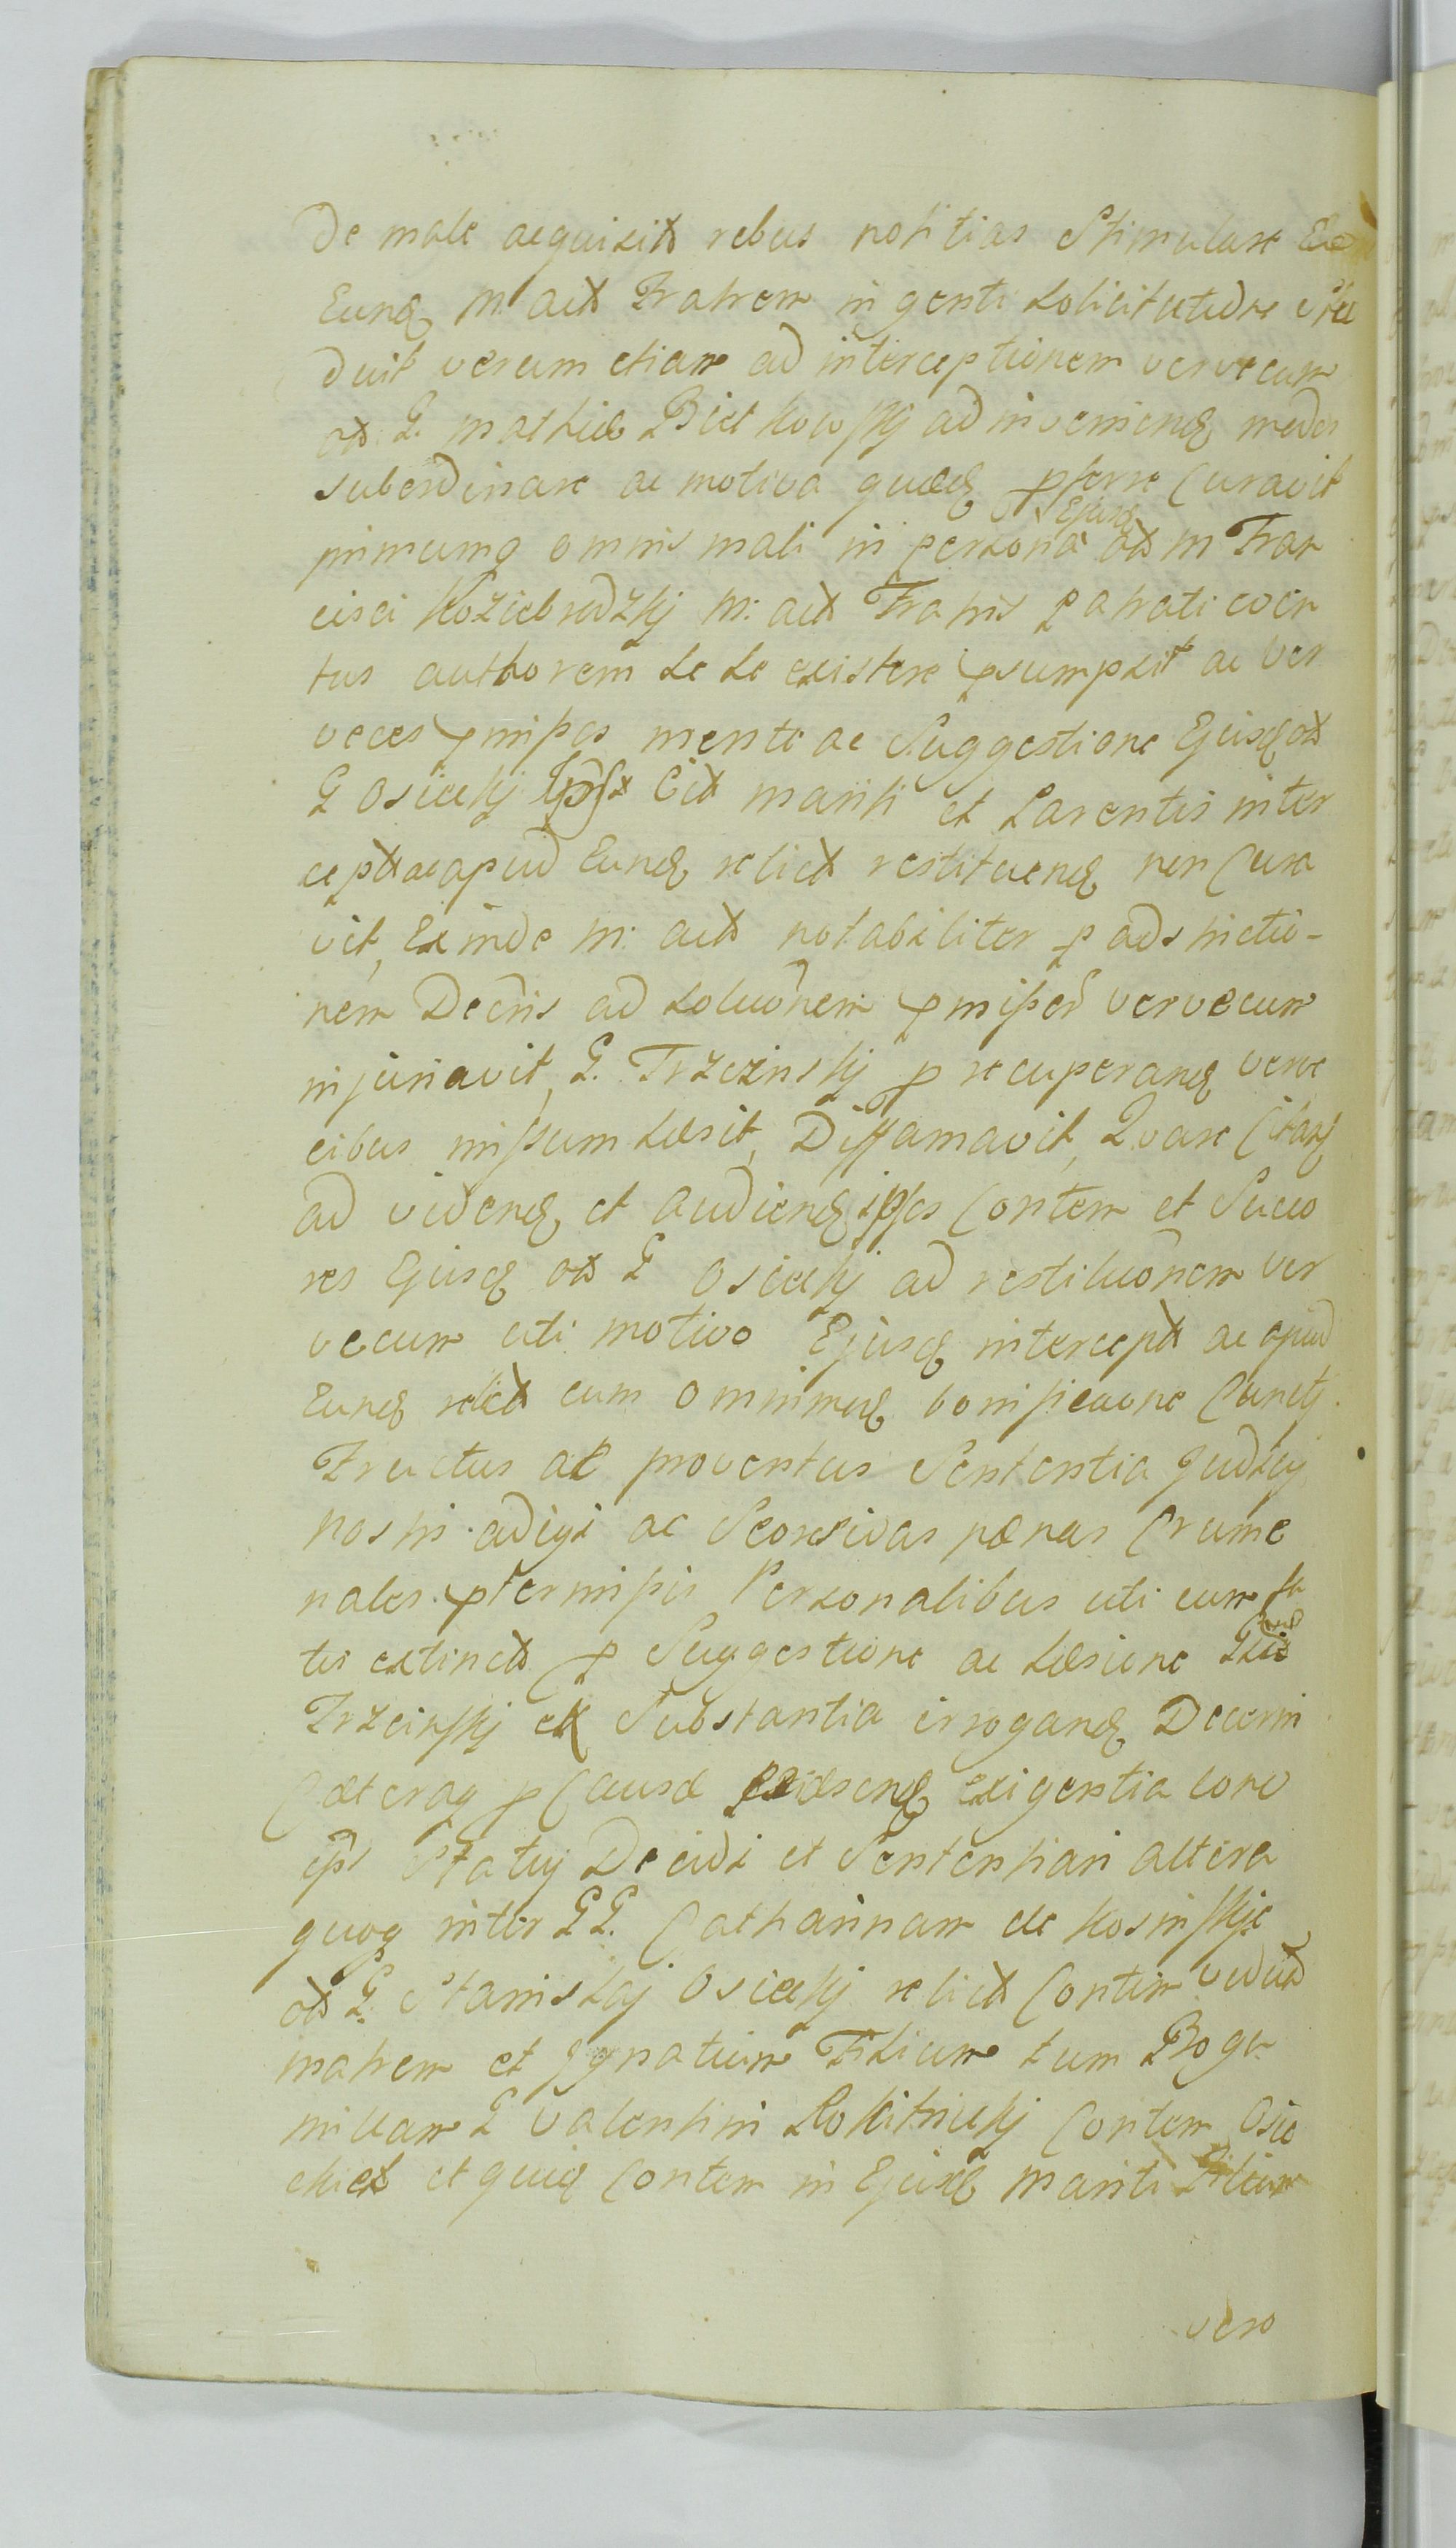 De male acquisit rebus notitias Stimulare
Eund M act Fratrem ingenti solicitudine
duit verum etiam ad interceptionem vervecum
ot G. Mathiae Bielkowskj adinveniend modos
subordinare ac motiva quaeq pferre Curavit
primumq omnis mali in persona Ejusd ot M Fran
cisci Koziebrodzkj M: act Fratris Patrati coen
tus authorem se se existere psumpsit ac ver
veces pmissos mente ac Suggestione Ejusd ot
G Osieckj Cit mariti et Parentis inter
cept ac apud Eund relict restituend non Cura
vit, Exinde M: act notabiliter p adstrictio-
nem Decris ad solutionem pmissor vervecum
injuriavit, G. Trzcinskj p recuperand verve
cibus missum laesit, Diffamavit, Quare Citand
ad vidend et audiend ipsos Contem et Succo
res Ejusd ot G Osieckj ad restitutionem ver
vecum uti motivo Ejusd intercept ac apud
Eund relict cum omnimod bonificaone Cunctj
Fructus ac proventus Sententia Judicij
nostri adigi ac Seorsivas paenas Crume
nales ptermissis Personalibus uti cum fa
tis extinct p Suggestione ac laesione Gsi
Trzcinskj ex Substantia irrogand Decerni
Caeteraq p Causae exigentia
Statuj Decidi et Sententiari altera
quoq inter GG. Catharinam de Kosinskie
ot G. Stanislaj Osieckj relict Contem vidua
matrem et Ignatium Filium tum Bogu
millam G Valentini Rokitnickj Contem Osie
ckich et quid Contem in Ejusd Mariti Filium
vero